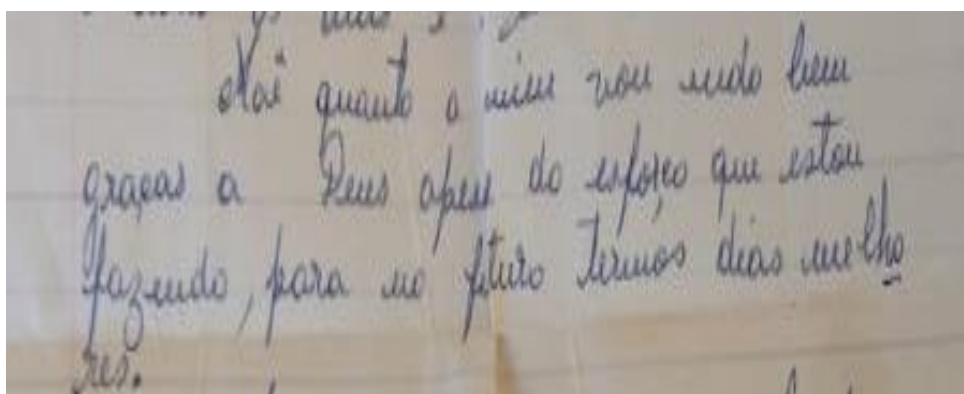 quanto a mim vou indo bem
graças a Deus apesar do esforço que estou
fazendo, para no futuro termos dias melho
res.